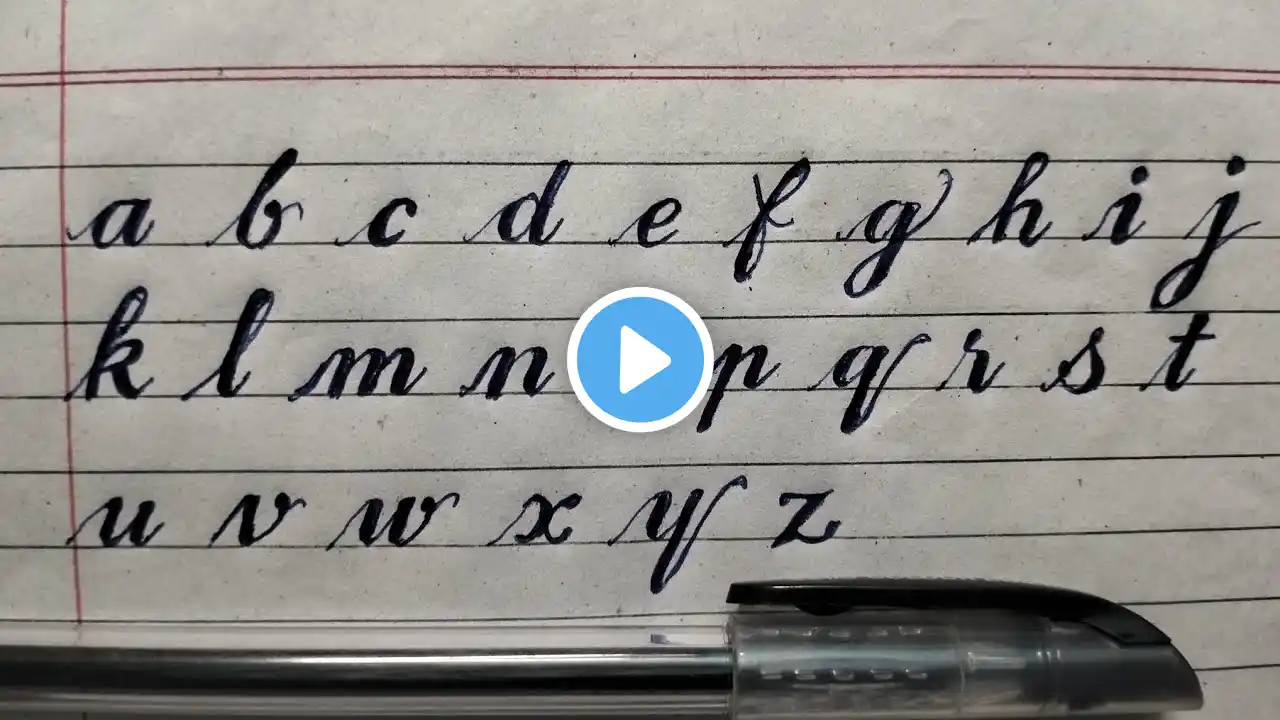 a b c d e f g h i j
k l m n p q r s t
u v w x y z